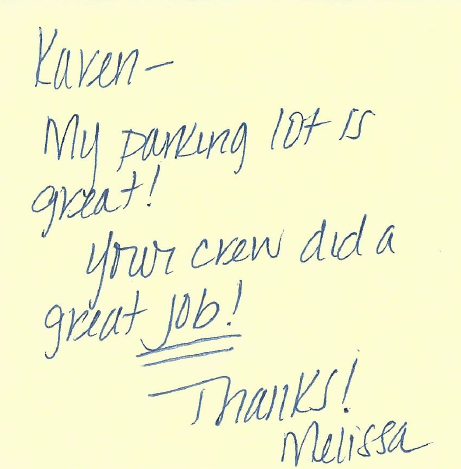 Karen-
My parking lot is
great!
Your crew did a
great job!
Thanks!
Melissa